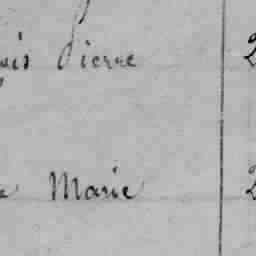 uis Pierre 2
e Marie 2